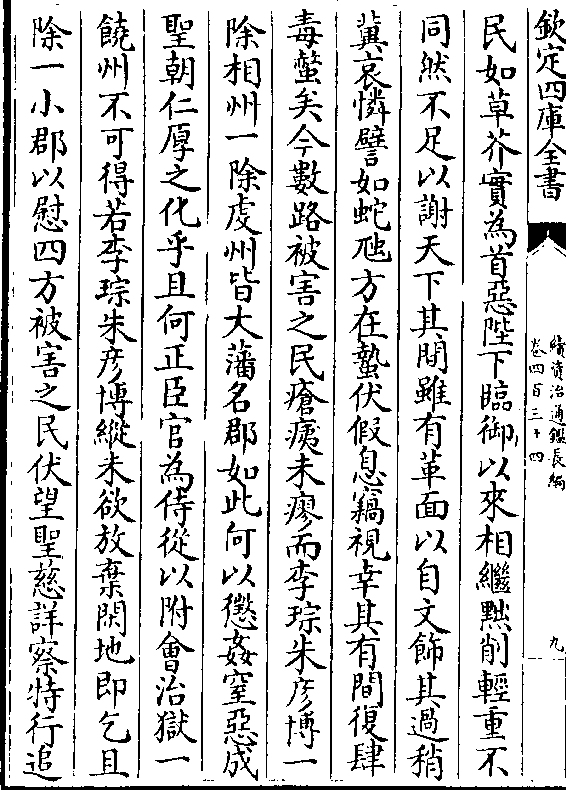 欽定四庫全書
續資治通鑑長編
卷四百三十四
九
民如草芥實為首惡陛下臨御以來相繼黜削輕重不
同然不足以謝天下其間雖有革面以自文飾其過稍
冀哀憐譬如蛇虺方在蟄伏假息竊視幸其有間復肆
毒螫矣今數路被害之民瘡痍未瘳而李琮朱彦博一
除相州一除䖍州皆大藩名郡如此何以懲姦窒惡成
聖朝仁厚之化乎且何正臣官為侍從以附會治獄一
饒州不可得若李琮朱彦博縱未欲放棄閑地即乞且
除一小郡以慰四方被害之民伏望聖慈詳察特行追